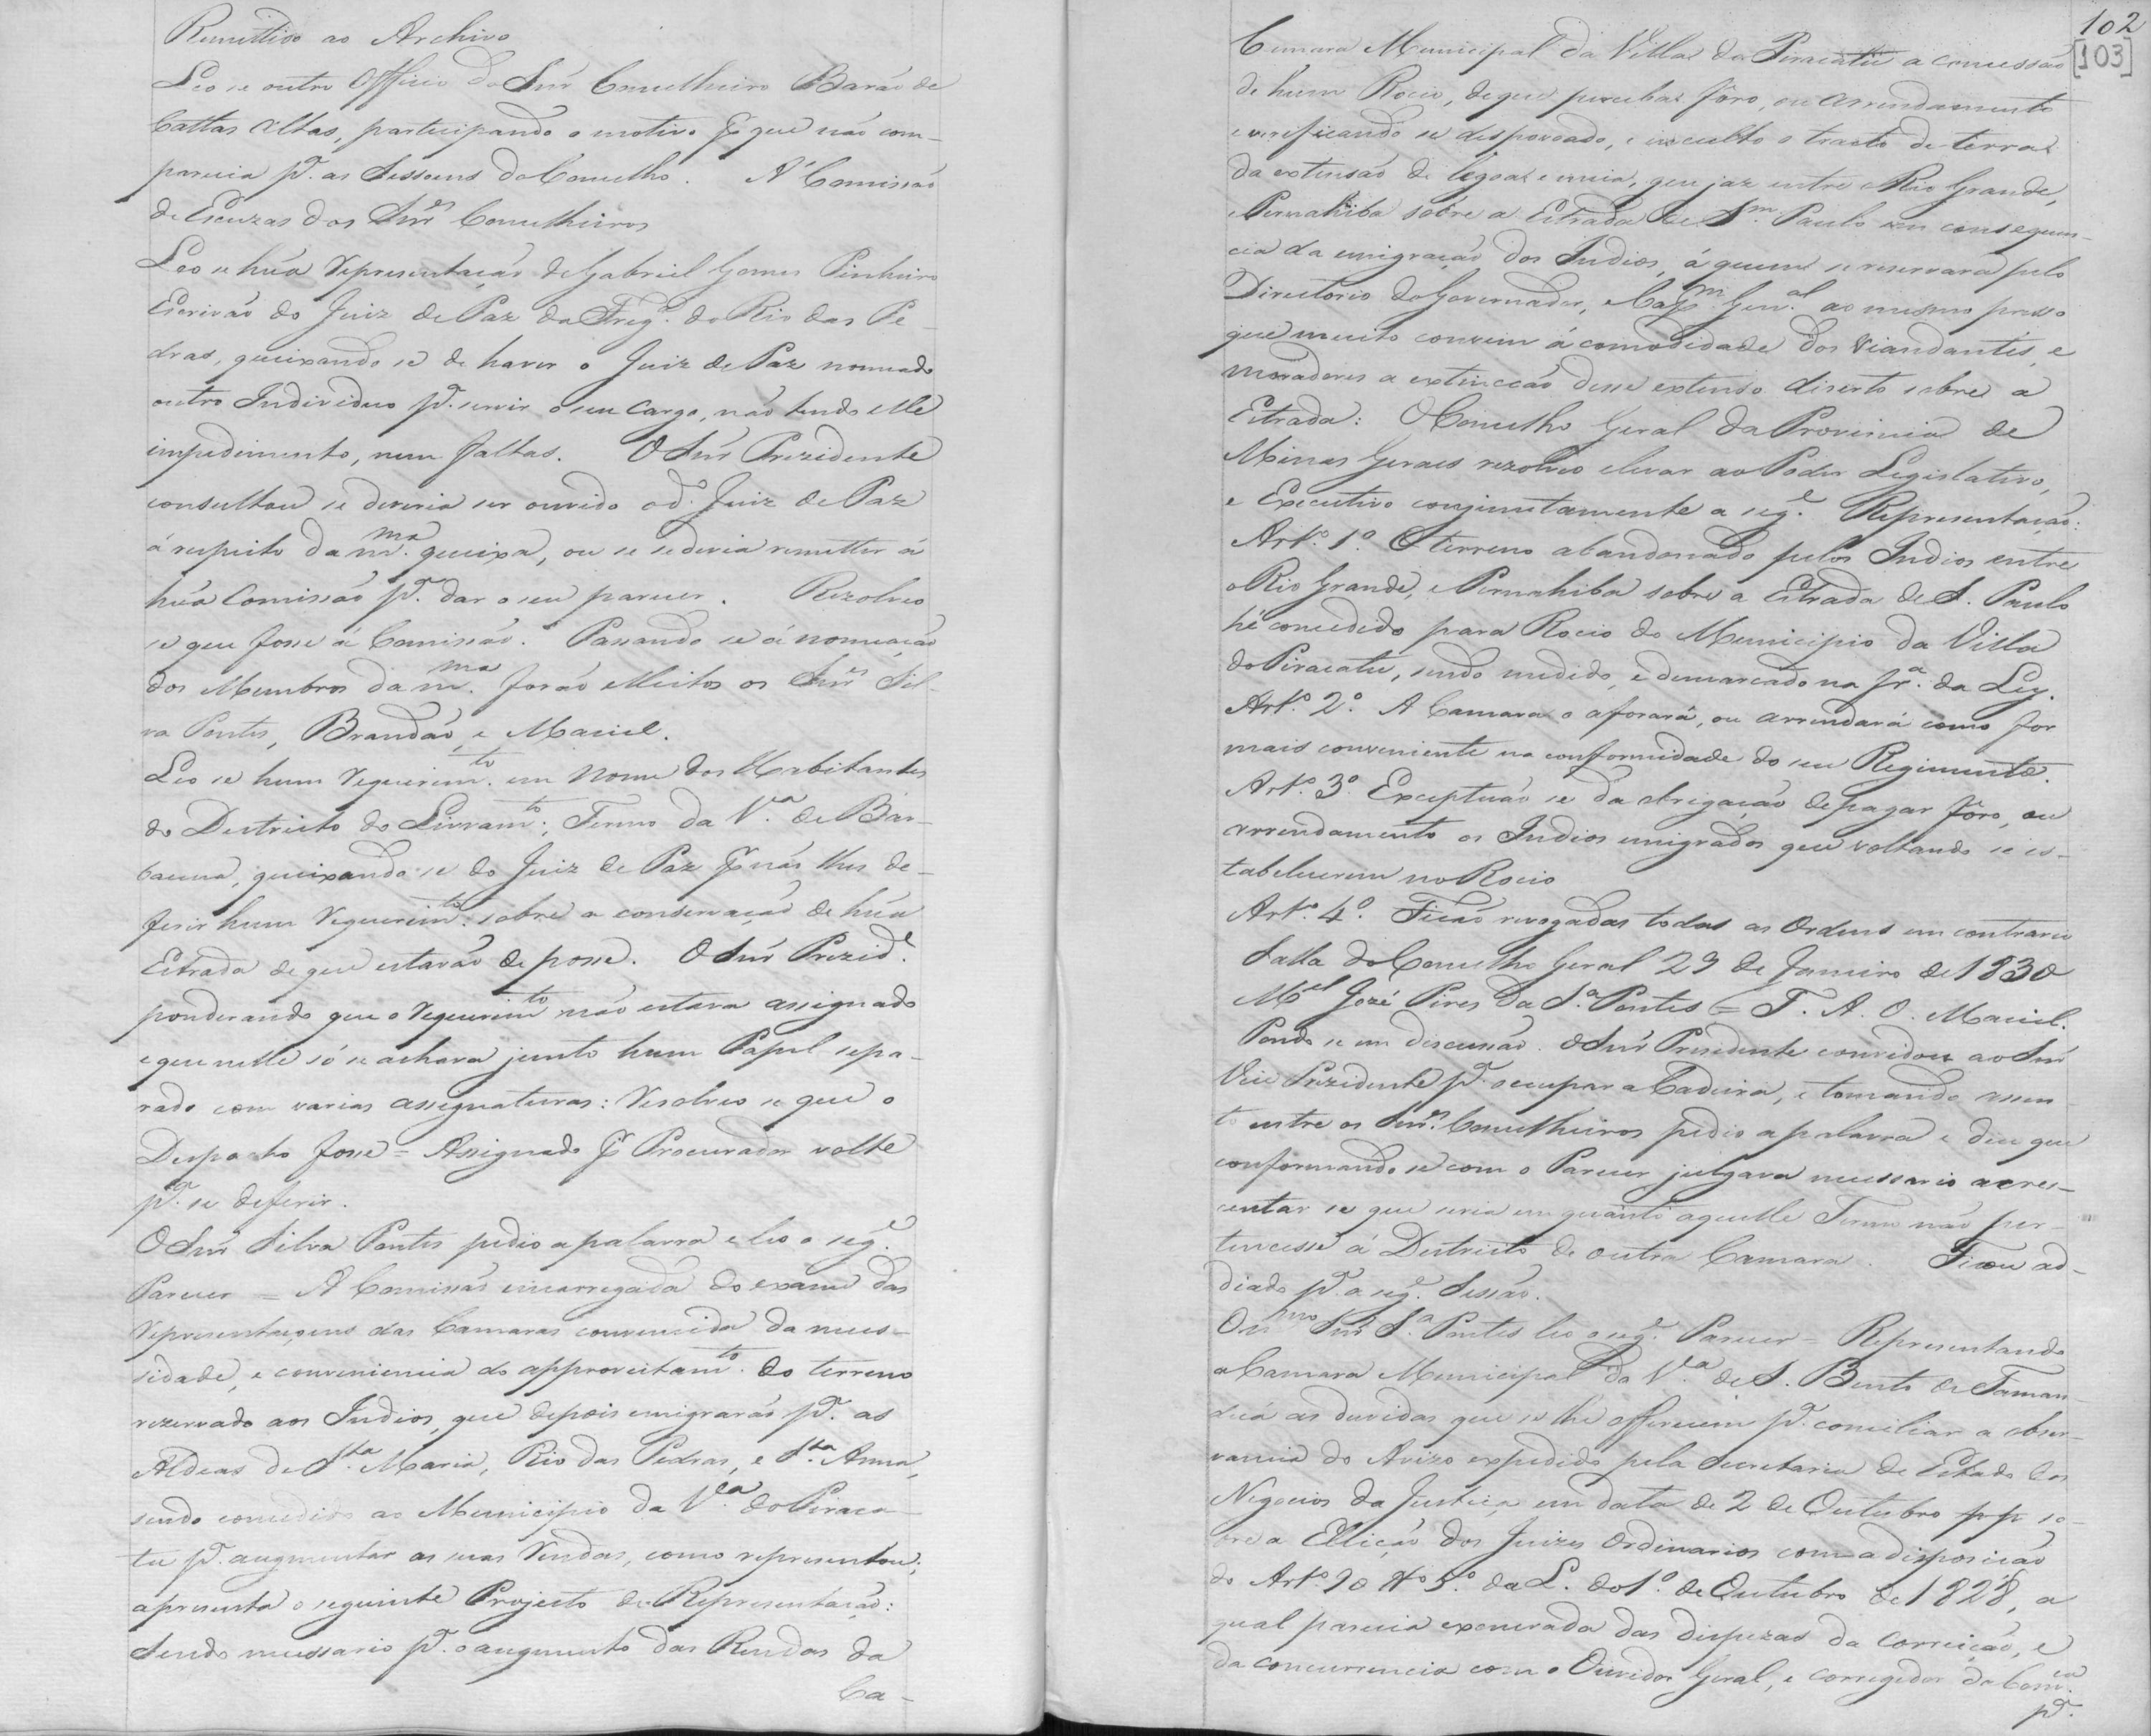 Remittido ao Archivo
Leo se outro Officio do Snr̃ Conselheiro Barão de
Cattas Altas, participando o motivo pr que não com-
parecia pa. as Sessoens do Conselho. A' Comissão
de Escuzas dos Snres Conselheiros
Leo se hũa Representação de Gabriel Gomes Pinheiro
Escrivão do Juiz de Paz da Frega. do Rio das Pe-
dras, queixando se de haver o Juiz de Paz nomeado
outro Individuo pa. servir o seu cargo, não tendo elle
impedimento, nem faltas. O Snr̃ Prezidente
consultou se deveria ser ouvido o do. Juiz de Paz
á respeito da mma. queixa, ou se se devia remetter á
hũa Comissão pa. dar o seu parecer. Rezolveo
se que fosse á Comissão. Passando se á nomeação
dos Membros da mma. forão elleitos os Snres Sil-
va Pontes, Brandão, e Maciel.
Leo se hum Requerimto. em nome dos Habitantes
do Destricto do Livramto., Termo da Va. de Bar-
bacena, queixando-se do Juiz de Paz pr não lhes de-
ferir hum Requerimto. sobre a conservação de hũa
Estrada de que estavão de posse. O Snr̃ Prezide.
ponderando que o Requerimto não estava assignado
e que nelle só se achava junto hum Papel sepa-
rado com varias assignaturas: Resolveo se que o
Despacho fosse = Assignado pr Procurador volte
pa. se deferir.
O Snr̃ Silva Pontes pedio a palavra e leo o sege.
Parecer = A Comissão encarregada do exame das
Representaçoens das Camaras convencida da neces-
sidade, e conveniencia do approveitamto. do terreno
rezervado aos Indios, que depois emigrarão pa. as
Aldeas de Sta. Maria, Rio das Pedras, e Sta. Anna,
sendo concedido ao Municipio da Va. do Piraca-
tu pa. augmentar as suas Rendas, como representou;
apresenta o seguinte Projecto de Representação:
Sendo necessario pa. o augmento das Rendas da
Ca-
102
[103]
Camara Municipal da Villa do Piracatu a concessão
de hum Rocio, de que perceba fôro, ou arrendamento
e verificando se despovoado, e inculto o tracto de terra
da extensão de legoa e meia, que jaz entre o Rio Grande,
e Parnahiba sobre a Estrada de Sm. Paulo em consequen-
cia da emigração dos Indios, á quem se reservara pelo
Directorio do Governador, e Capm. Genal. ao mesmo passo
que muito convem á comodidade dos viandantes, e
moradores a extincção desse extenso diserto sobre a
Estrada: O Conselho Geral da Provincia de
Minas Geraes rezolveo elevar ao Poder Legislativo,
e Executivo conjunctamente a sege. Representação:
Arto. 1o. O terreno abandonado pelos Indios entre
o Rio Grande, e Parnahiba sobre a Estrada de S. Paulo
hé concedido para Rocio do Municipio da Villa
do Piracatu, sendo medido, e demarcado na fra. da Ley.
Arto. 2o. A Camara o aforará, ou arrendará como for
mais conveniente na conformidade do seu Regimento.
Arto. 3o. Exceptuão se da obrigação de pagar fôro, ou
arrendamento os Indios emigrados que voltando se es-
tabelecerem no Rocio
Arto. 4o. Ficão revogadas todas as Ordens em contrario
Salla do Conselho Geral 29 de Janeiro de 1830
Mel José Pires da Sa. Pontes = T. A. O. Maciel.
Pondo se em discussão. O Snr̃ Presidente convidou ao Snr̃
Vice Prezidente pa. occupar a Cadeira, e tomando assen
to entre os Snres. Conselheiros pedio a palavra e dice que
conformando se com o Parecer julgava necessario acres-
centar se que seria em quanto aquelle Termo não per-
tencesse á Destricto de outra Camara. Ficou ad-
diado pa. a sege. Sessão.
O mmo Snr̃ Sa. Pontes leo o sege. Parecer = Representando
a Camara Municipal da Va. de S. Bento de Taman
duá as duvidas que se lhe offerecem pa. conciliar a obser-
vancia do Avizo expedido pela Secretaria de Estado dos
Negocios da Justiça em data de 2 de Outubro pp so-
bre a Elleição dos Juizes Ordinarios com a disposição
do Arto. 90 No 5o. da L. do 1o. de Outubro de 1828, a
qual parecia exonerada das dispezas da correição, e
da concurrencia com o Ouvidor Geral, e corregedor da Comca.
pa.